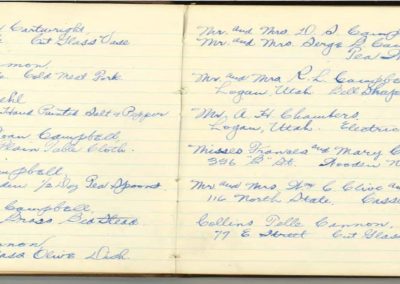 Cartwright,
Cut Glass Vase
Cold Meat Fork
Hand Painted Salt & Pepper
Campbell,
Table Cloth.
Campbell,
1/2 Doz Tea Spoons
Campbell,
Brass Bedstead
Cannon,
Olive Dish
Mr. and Mrs. D. S. Camp
Mr. and Mrs. Serge B Ca
Tea
Mr. and Mrs. R. L. Campbe
Logan, Utah. Bell Shap
Mr. A. H. Chambers,
Logan, Utah. Electric
Misses Frances and Mary C
336 "B" St. Wooden
Mr and Mrs. Wm C Clive an
116 North State. Casse
Collins Telle Cannon,
77 E Street Cut Glas